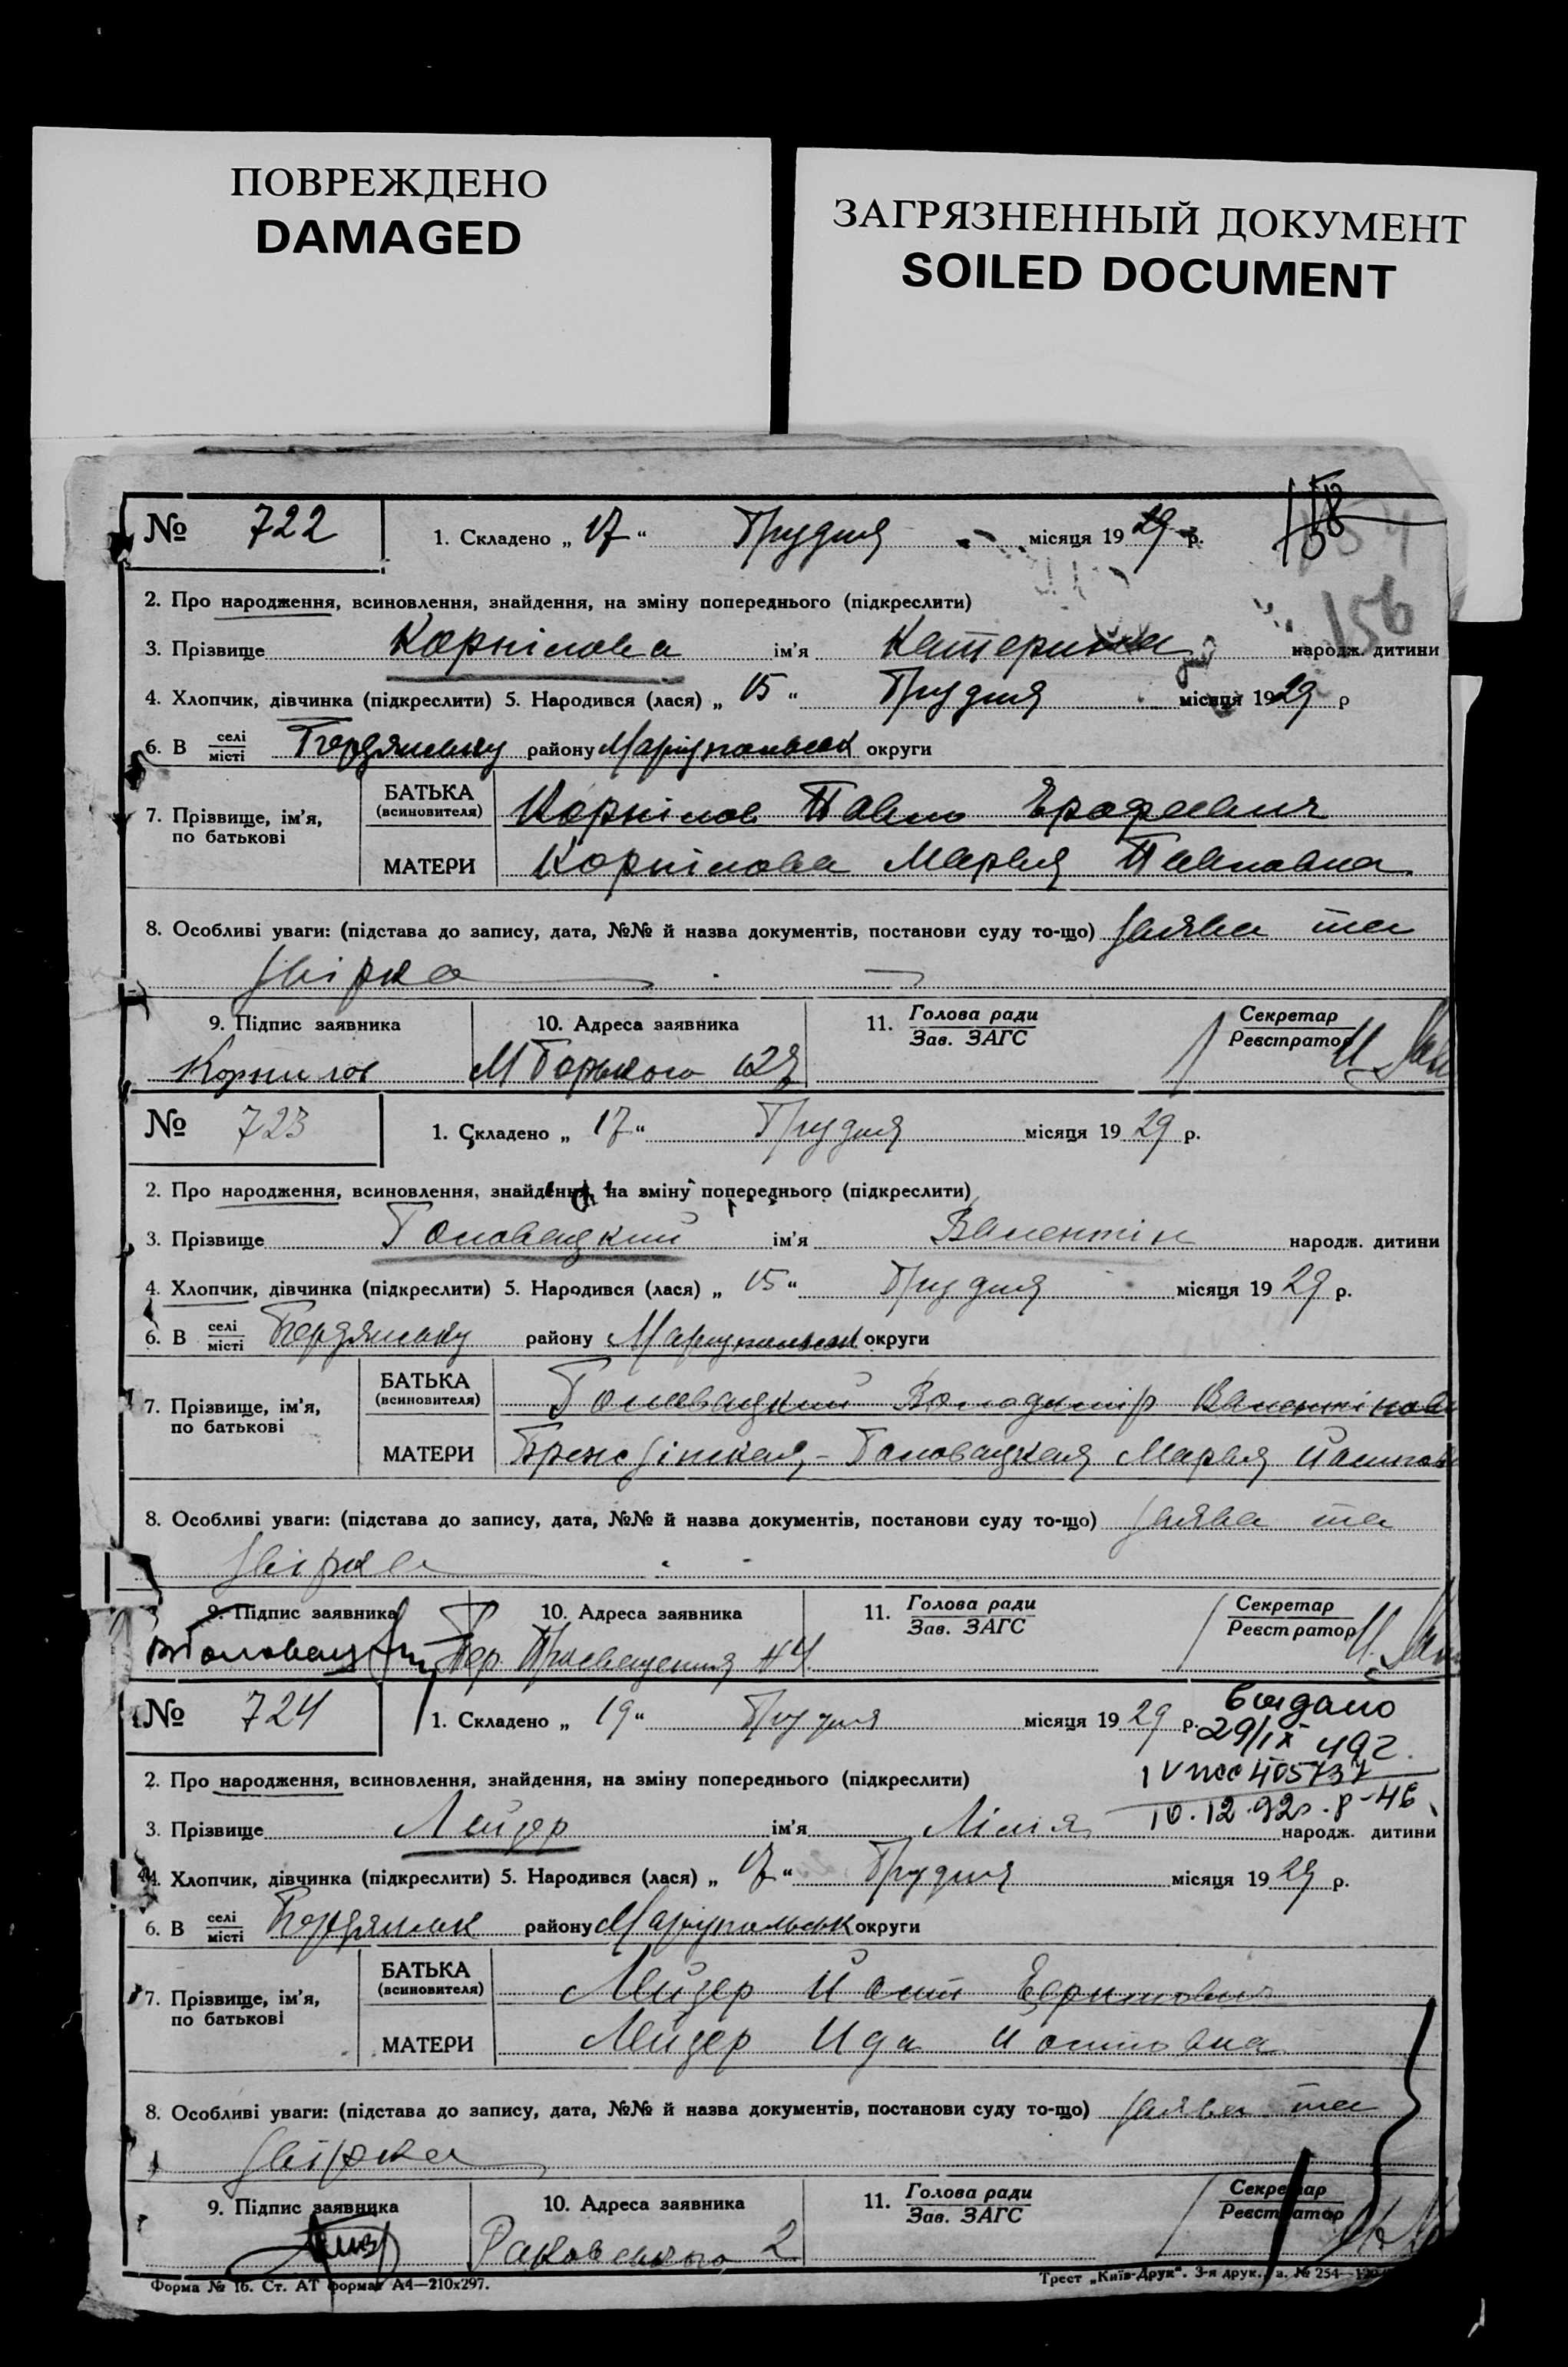 ПОВРЕЖДЕНО
DAMAGED
ЗАГРЯЗНЕННЫЙ ДОКУМЕНТ
SOILED DOCUMENT
156
№ 722 1. Складено „ 17 “ Грудня місяця 19 29 р.
2. Про народження, всиновлення, знайдення, на зміну попереднього (підкреслити)
3. Прізвище Корнілова ім'я Катерина народж. дитини
4. Хлопчик, дівчинка (підкреслити) 5. Народився (лася) „ 15 “ Грудня місяця 19 29 р
6. В селі місті Бердянську району Маріупольськ округи
7. Прізвище, ім'я, по батькові
БАТЬКА (всиновителя) Корнілов Павло Ерофеевич
МАТЕРИ Корнілова Марья Павловна
8. Особливі уваги: (підстава до запису, дата, №№ й назва документів, постанови суду то-що) Заява та
звірка
9. Підпис заявника 10. Адреса заявника 11. Голова ради Зав. ЗАГС Секретар Реєстратор
Корнилов М Горького
№ 723 1. Складено „ 17 “ Грудня місяця 19 29 р.
2. Про народження, всиновлення, знайдення, на зміну попереднього (підкреслити)
3. Прізвище Головацкий ім'я Валентін народж. дитини
4. Хлопчик, дівчинка (підкреслити) 5. Народився (лася) „ 15 “ Грудня місяця 19 29 р.
6. В селі місті Бердянську району Маріупольськ округи
7. Прізвище, ім'я, по батькові
БАТЬКА (всиновителя) Головацкий Володимір Валентінови
МАТЕРИ Головацкая Марья
8. Особливі уваги: (підстава до запису, дата, №№ й назва документів, постанови суду то-що) Заява та
звірка
9. Підпис заявника 10. Адреса заявника 11. Голова ради Зав. ЗАГС Секретар Реєстратор
Пер. Просвещения
№ 724 1. Складено „ 19 “ Грудня місяця 19 29 р.
выдано
29/IX 49г.
405737
10.12.92
2. Про народження, всиновлення, знайдення, на зміну попереднього (підкреслити)
3. Прізвище Лейзер ім'я Лілія народж. дитини
4. Хлопчик, дівчинка (підкреслити) 5. Народився (лася) „ 17 “ Грудня місяця 19 29 р.
6. В селі місті Бердянськ району Маріупольськ округи
7. Прізвище, ім'я, по батькові
БАТЬКА (всиновителя) Лейзер
МАТЕРИ Лейзер Ида
8. Особливі уваги: (підстава до запису, дата, №№ й назва документів, постанови суду то-що) Заява та
звірка
9. Підпис заявника 10. Адреса заявника 11. Голова ради Зав. ЗАГС Секретар Реєстратор
Раковського 2
Форма № 16. Ст. АТ формат А4—210х297.
Трест „Київ-Друк“. 3-я друк. з. № 254—